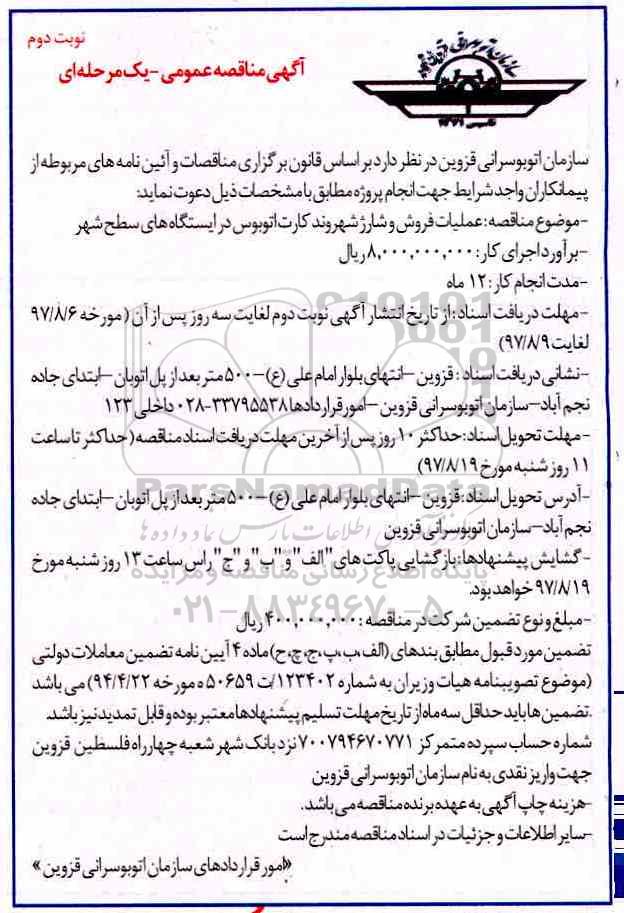 نوبت دوم
آگهی مناقصه عمومی - یک مرحله‌ای
سازمان اتوبوسرانی قزوین در نظر دارد بر اساس قانون برگزاری مناقصات و آئین نامه های مربوطه از
پیمانکاران واجد شرایط جهت انجام پروژه مطابق با مشخصات ذیل دعوت نماید:
-موضوع مناقصه: عملیات فروش و شارژ شهروند کارت اتوبوس در ایستگاه های سطح شهر
-برآورد اجرای کار: ۸,۰۰۰,۰۰۰,۰۰۰ ریال
-مدت انجام کار: ۱۲ ماه
-مهلت دریافت اسناد: از تاریخ انتشار آگهی نوبت دوم لغایت سه روز پس از آن (مورخه ۹۷/۸/۶
لغایت ۹۷/۸/۹)
-نشانی دریافت اسناد: قزوین – انتهای بلوار امام علی (ع) – ۵۰۰ متر بعد از پل اتوبان – ابتدای جاده
نجم آباد – سازمان اتوبوسرانی قزوین – امور قراردادها ۳۳۷۹۵۵۳۸-۰۲۸ داخلی ۱۲۳
-مهلت تحویل اسناد: حداکثر ۱۰ روز پس از آخرین مهلت دریافت اسناد مناقصه (حداکثر تا ساعت
۱۱ روز شنبه مورخ ۹۷/۸/۱۹)
-آدرس تحویل اسناد: قزوین – انتهای بلوار امام علی (ع) – ۵۰۰ متر بعد از پل اتوبان – ابتدای جاده
نجم آباد – سازمان اتوبوسرانی قزوین
-گشایش پیشنهادها: بازگشایی پاکت های "الف" و "ب" و "ج" راس ساعت ۱۳ روز شنبه مورخ
۹۷/۸/۱۹ خواهد بود.
-مبلغ و نوع تضمین شرکت در مناقصه: ۴۰۰,۰۰۰,۰۰۰ ریال
تضمین مورد قبول مطابق بندهای (الف،ب،پ،ج،چ،ح) ماده ۴ آیین نامه تضمین معاملات دولتی
(موضوع تصویبنامه هیات وزیران به شماره ۱۲۳۴۰۲/ت ۵۰۶۵۹ ه مورخه ۹۴/۴/۲۲) می باشد
.تضمین ها باید حداقل سه ماه از تاریخ مهلت تسلیم پیشنهادها معتبر بوده و قابل تمدید نیز باشد.
شماره حساب سپرده متمرکز ۷۰۰۷۹۴۶۷۰۷۷۱ نزد بانک شهر شعبه چهارراه فلسطین قزوین
جهت واریز نقدی به نام سازمان اتوبوسرانی قزوین
-هزینه چاپ آگهی به عهده برنده مناقصه می باشد.
-سایر اطلاعات و جزئیات در اسناد مناقصه مندرج است
«امور قراردادهای سازمان اتوبوسرانی قزوین»
ParsNamadData
پایگاه اطلاع رسانی مناقصه و مزایده
۰۲۱-۸۸۳۴۹۶۷۰-۵